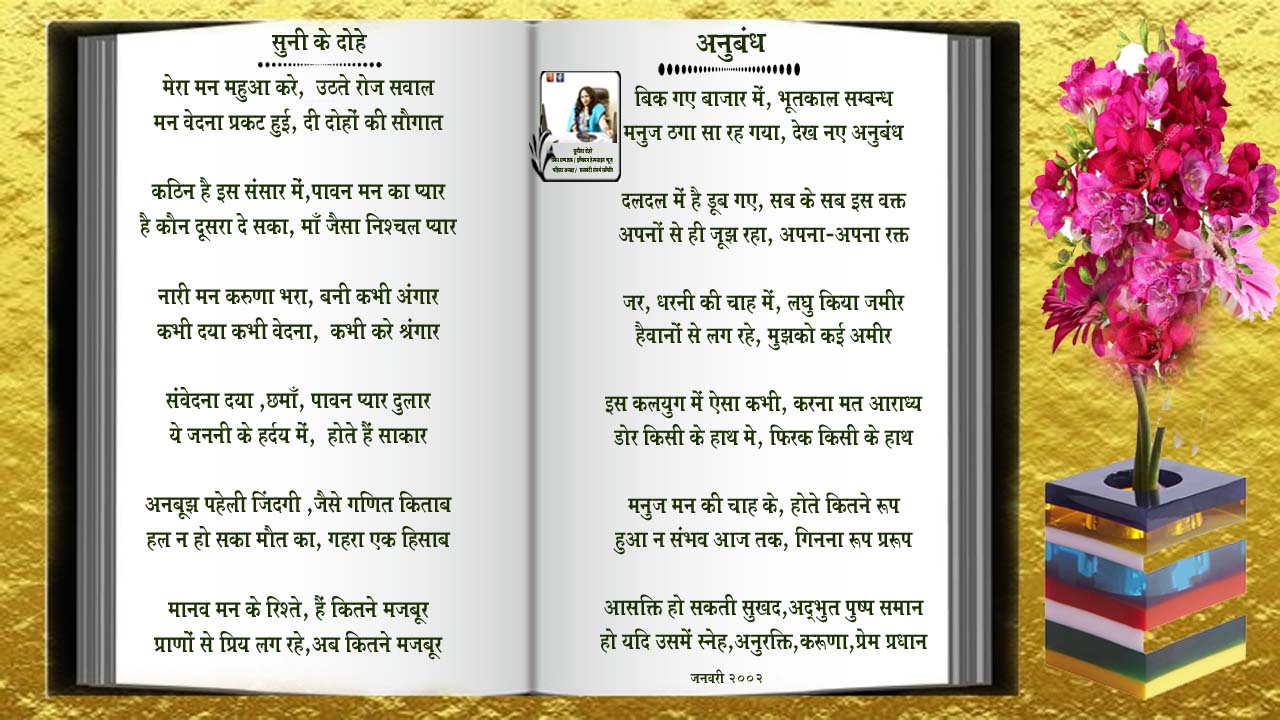 सुनी के दोहे
मेरा मन महुआ करे, उठते रोज सवाल
मन वेदना प्रकट हुई, दी दोहों की सौगात
कठिन है इस संसार में,पावन मन का प्यार
है कौन दूसरा दे सका, माँ जैसा निश्चल प्यार
नारी मन करुणा भरा, बनी कभी अंगार
कभी दया कभी वेदना, कभी करे श्रंगार
संवेदना दया ,छमाँ, पावन प्यार दुलार
ये जननी के हर्दय में, होते हैं साकार
अनबूझ पहेली जिंदगी ,जैसे गणित किताब
हल न हो सका मौत का, गहरा एक हिसाब
मानव मन के रिश्ते, हैं कितने मजबूर
प्राणों से प्रिय लग रहे,अब कितने मजबूर
अनुबंध
बिक गए बाजार में, भूतकाल सम्बन्ध
मनुज ठगा सा रह गया, देख नए अनुबंध
दलदल में है डूब गए, सब के सब इस वक्त
अपनों से ही जूझ रहा, अपना-अपना रक्त
जर, धरनी की चाह में, लघु किया जमीर
हैवानों से लग रहे, मुझको कई अमीर
इस कलयुग में ऐसा कभी, करना मत आराध्य
डोर किसी के हाथ मे, फिरक किसी के हाथ
मनुज मन की चाह के, होते कितने रूप
हुआ न संभव आज तक, गिनना रूप प्ररूप
आसक्ति हो सकती सुखद,अद्भुत पुष्प समान
हो यदि उसमें स्नेह,अनुरक्ति,करूणा,प्रेम प्रधान
जनवरी २००२